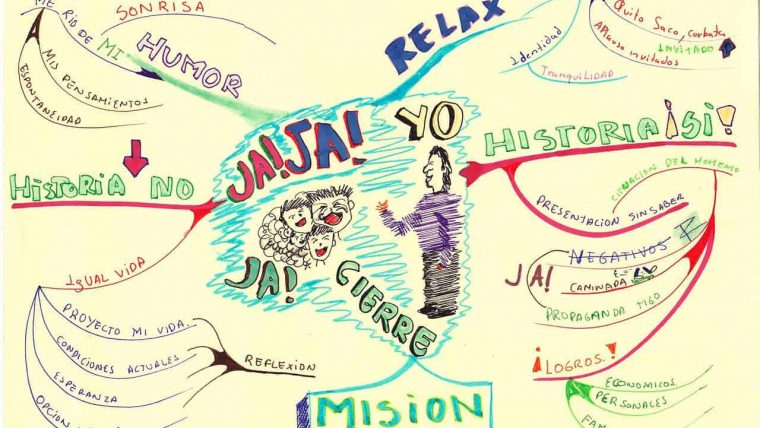 SONRISA
ME RIO DE MI
HUMOR
MIS PENSAMIENTOS
ESPONTANEIDAD
RELAX
Identidad
TranquiLIDAD
Quito Saco, corbata
APlauso invitados
INVITADO
JA! JA!
YO
JA!
CIERRE
HISTORIA NO
IGUAL VIDA
PROYECTO MI VIDA
CONDICIONES ACTUALES
ESPERANZA
OPCION
REFLEXION
HISTORIA ¡SI!
SITUACION DEL MOMENTO
PRESENTACION SIN SABER
JA!
NEGATIVOS
CAMINADA
PROPAGANDA TIGO
¡LOGROS!
ECONOMICOS
PERSONALES
FAM
MISION